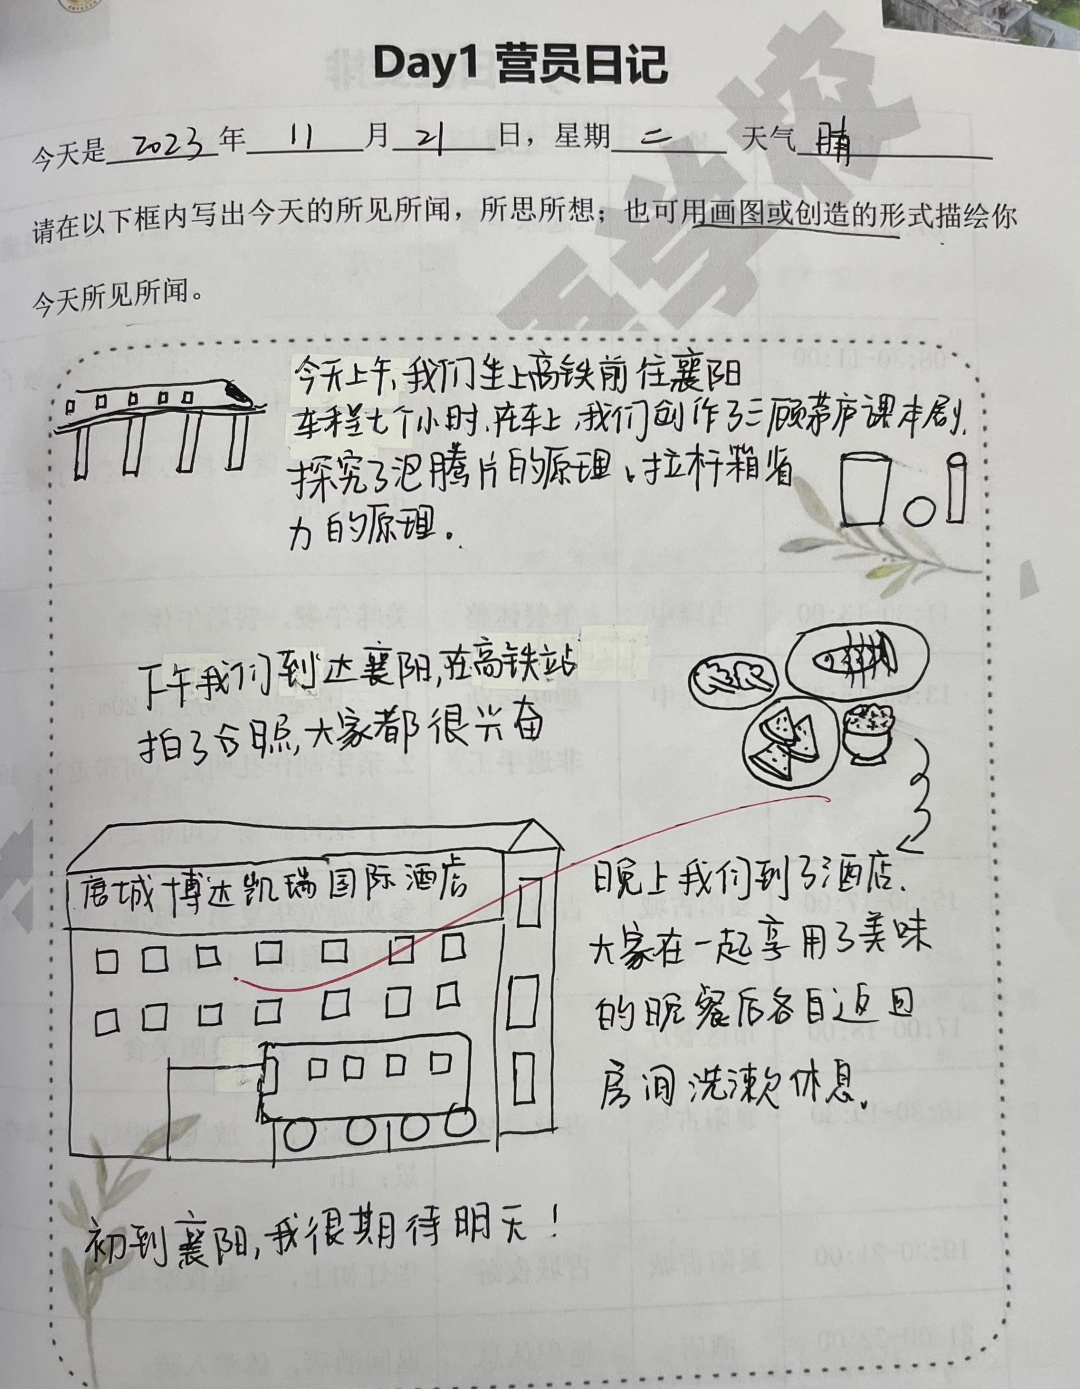 Day1 营员日记
今天是 2023 年 11 月 21 日，星期 二 天气 晴
请在以下框内写出今天的所见所闻，所思所想；也可用画图或创造的形式描绘你
今天所见所闻。
今天上午,我们坐上高铁前往襄阳
车程七个小时.在车上,我们创作了三顾茅庐课本剧,
探究了泡腾片的原理、拉杆箱省
力的原理。
下午我们到达襄阳,在高铁站
拍了合照,大家都很兴奋
唐城博达凯瑞国际酒店
晚上我们到了酒店.
大家在一起享用了美味
的晚餐后各自返回
房间洗漱休息。
初到襄阳,我很期待明天!